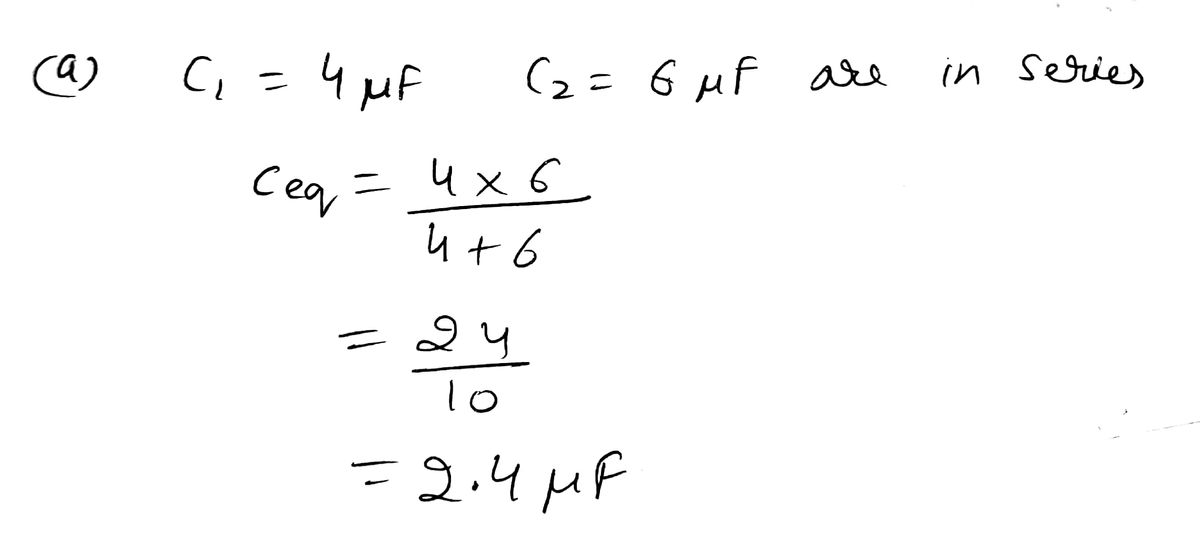 (a) C₁ = 4 μF C₂ = 6 μF are in series
Ceq = 4 × 6
4 + 6
= 24
10
= 2.4 μF